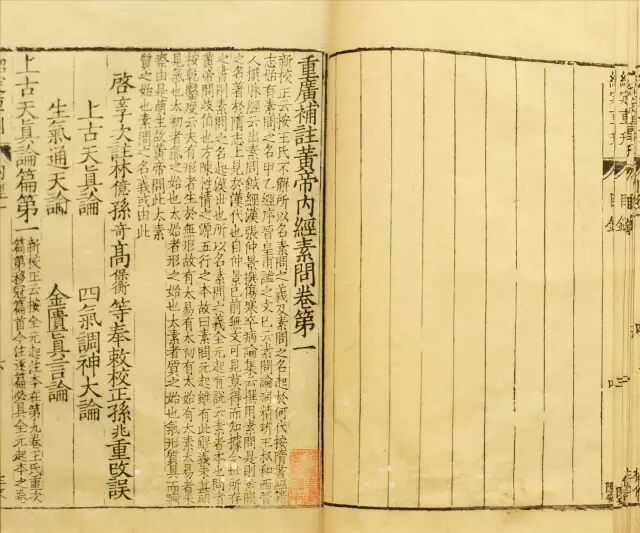 目錄
重廣補註黃帝內經素問卷第一
新校正云按王氏不解所以名素問之義及素問之名起於何代按隋書經籍
志始有素問之名甲乙經序晉皇甫謐之文已云素問論病精辨王叔和西晉
人撰脉經云出素問鍼經漢張仲景撰傷寒卒病論集云撰用素問是則素問
之名著於隋志上見於漢代也自仲景已前無文可見莫得而知據今世所存
之書則素問之名起漢世也所以名素問之義全元起有說云素者本也問者
黃帝問歧伯也方陳性情之源五行之本故曰素問元起雖有此解義未甚明
按乾鑿度云夫有形者生於無形故有太易有太初有太始有太素太易者未
見氣也太初者氣之始也太始者形之始也太素者質之始也氣形質具而痾
瘵由是萌生故黃帝問此太素
質之始也素問之名義或由此
啓玄子次註林億孫奇高保衡等奉敕校正孫兆重改誤
上古天眞論 四氣調神大論
生氣通天論 金匱眞言論
上古天眞論篇第一
新校正云按全元起注本在第九卷王氏重次
篇第移冠篇首今注逐篇必具全元起本之卷